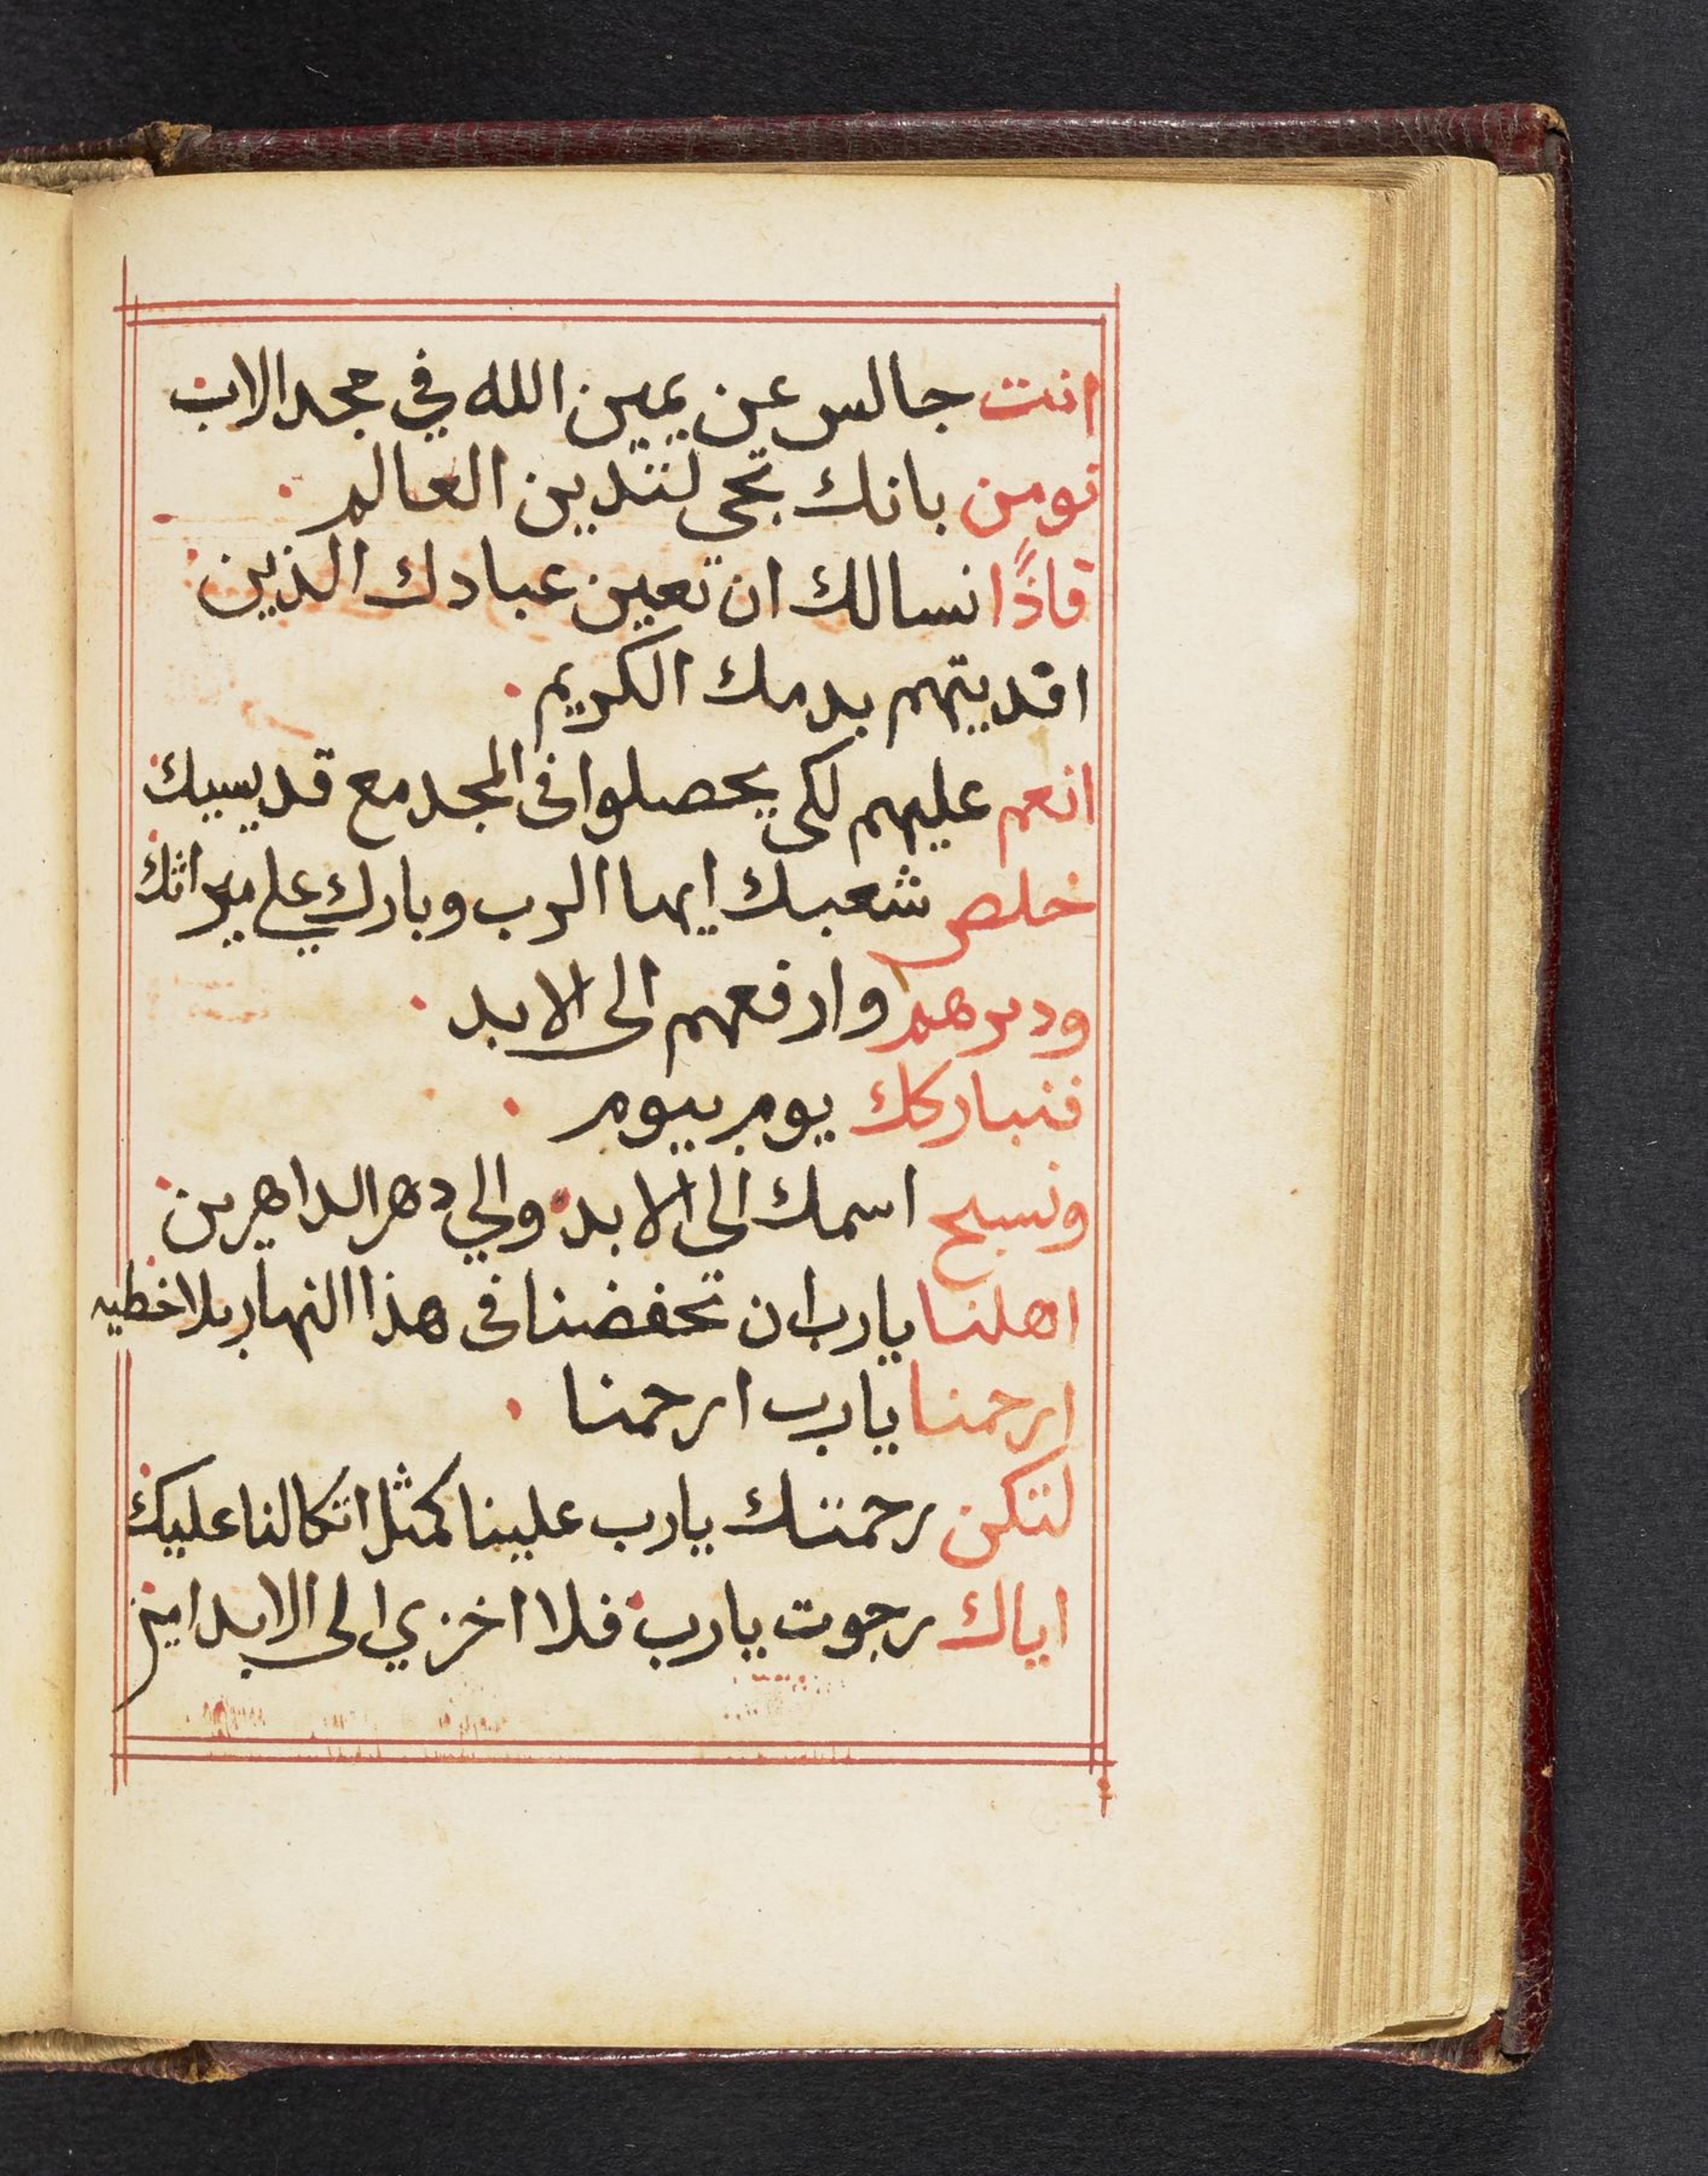 انت جالس عن يمين الله في مجد الاب
نومن بانك تجي لتدين العالم
فاذًا نسالك ان تعين عبادك الذين
افديتهم بدمك الكريم
انعم عليهم لكى يحصلوا فى المجد مع قديسيك
خلص شعبك ايها الرب وبارك علي ميراثك
ودبرهم وارفعهم الى الابد
فنباركك يوم بيوم
ونسبح اسمك الي الابد والي دهر الداهرين
اهلنا يارب ان تحفضنا فى هذا النهار بلا خطيه
ارحمنا يارب ارحمنا
لتكن رحمتك يارب علينا كمثل اتكالنا عليك
اياك رجوت يارب فلا اخزي الى الابد امين